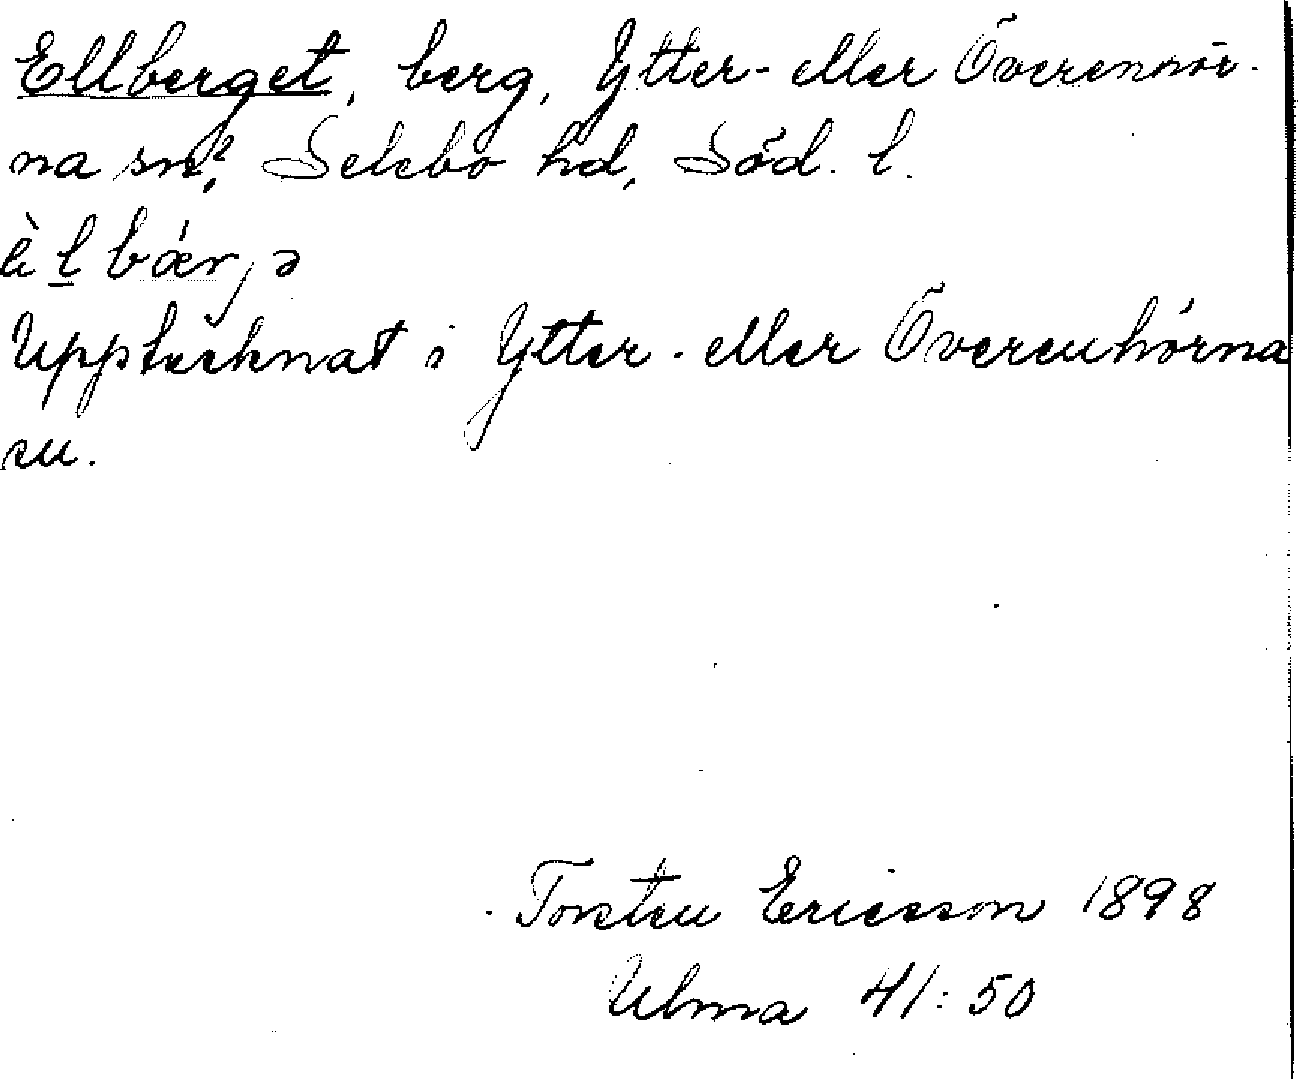 Ellberget, berg, Ytter- eller Överenhör-
na sn?, Selebo hd, Söd. l.
Upptecknat i Ytter- eller Överenhörna
sn.
Torsten Ericsson 1898
Ulma 41:50